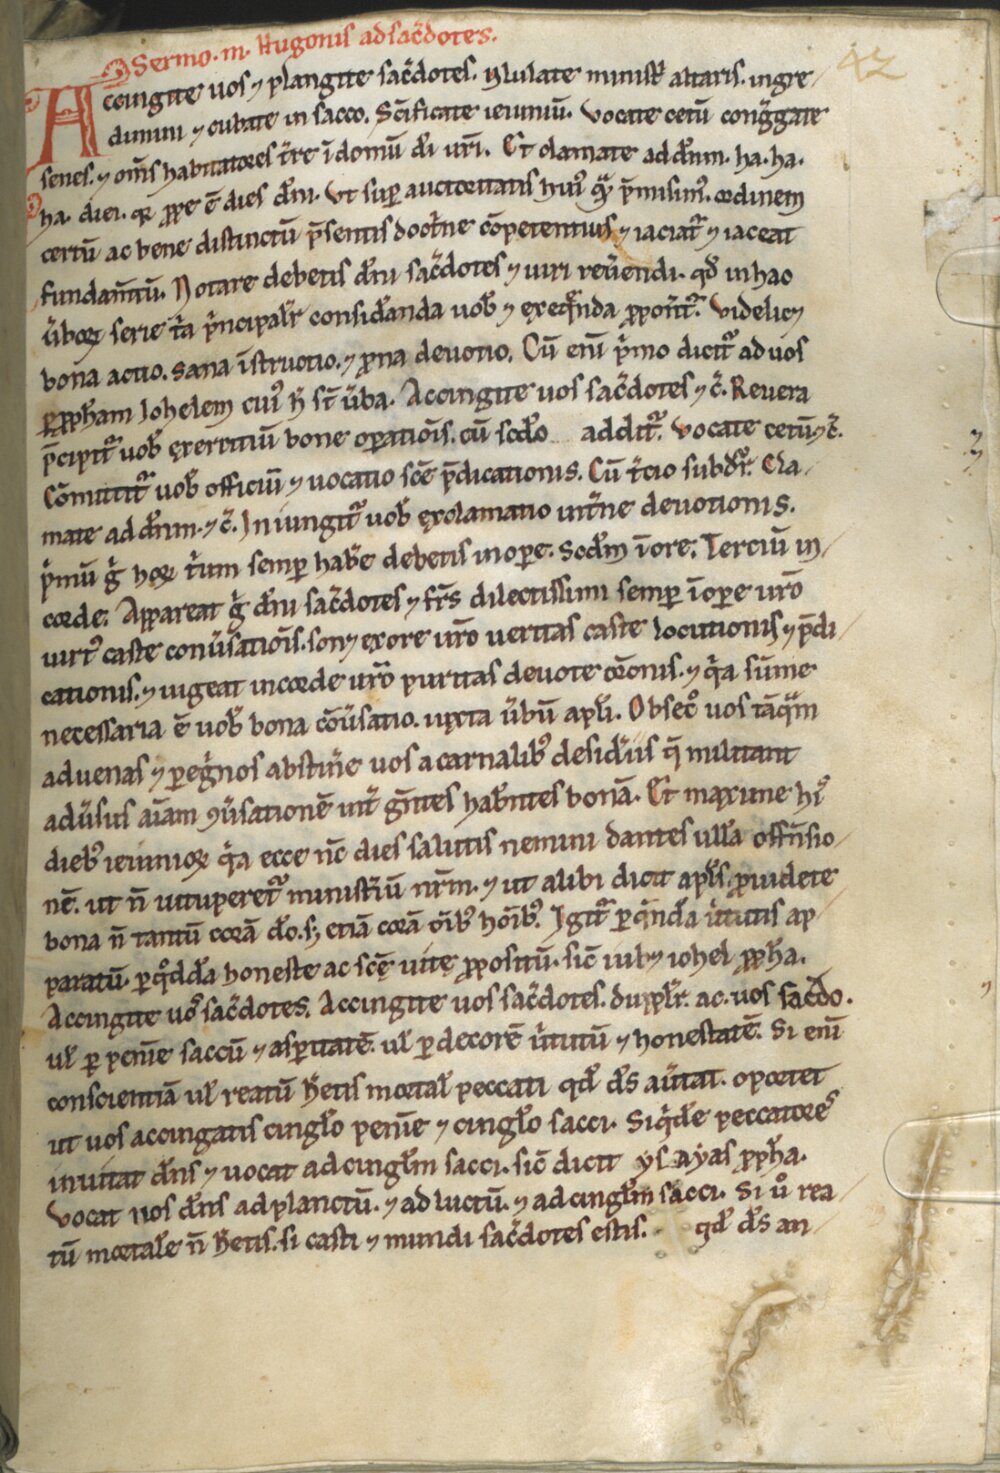 Sermo. m. hugonis ad sac̄dotes.
42
Accingite uos ⁊ plangite sac̄dotes. ululate ministⁱ altaris. ingre/
dimini ⁊ cubate in sacco. Sc̄ificate ieiuniū. Vocate cetū congͣgate
senes. ⁊ om̄s habitatores t̄re ī domū dī urī. Et clamate ad dn̄m. ha. ha.
ha. diei. qꝛ ꝓpe ē dies dn̄i. Ut suꝑ auctoritatis huiꝰ qͣ p̄misimꝰ. ordinem
certū ac bene distinctū p̄sentis doctͥne cōpetentius ⁊ iaciatͬ ⁊ iaceat
fundam̄tū. Notare debetis dn̄i sac̄dotes ⁊ uiri reūendi. qd̄ in hac
ūboꝝ serie tͥa pͥncipalit̄ consid̄anda uob̄ ⁊ exeq̄nda ꝓpon̄tͬ. Videlicꝫ
bona actio. sana īstructio. ⁊ pͥona deuotio. Cū eni͞ pͥmo dicitͬ ad uos
ꝑ ꝓph̄am Iohelem cuiꝰ h̄ st̄ ūba. Accingite uos sac̄dotes ⁊ c̄. Reuera
p̄cipitͬ uob̄ exercitiū bone oꝑatiōis. cū scd̄o additͬ. Vocate cetū ⁊ c̄.
Cōmittitͬ uob̄ officiū ⁊ uocatio sc̄e p̄dicationis. Cū tͥcio subdr̄. Cla/
mate ad dn̄m. ⁊ c̄. Iniungitͬ uob̄ exclamatio int̄ne deuotionis.
pͥmū gͥ hoꝝ tͥum semꝑ habe̅ debetis in oꝑe. Scd̄m ī ore. Terciū in/
corde. Appareat gͥ dn̄i sac̄dotes ⁊ fr̄s dilectissimi semꝑ ī oꝑe ur̄o
uirtꝰ caste conūsatiōis. sonꝫ ex ore ur̄o ueritas caste locutionis ⁊ p̄di/
cationis. ⁊ uigeat in corde ur̄o puritas deuote or̄onis. ⁊ qͥa sūme
necessaria ē uob̄ bona cōūsatio. iuxta ūbū apl̄i. Obsecͦ uos tāqͣm
aduenas ⁊ ꝑegͥnos abstin̄e uos a carnalibꝰ desid̄iis q̄ militant
adūsus aīam ꝯūsationē int̄ gn̄tes hab̄ntes bonā. Et maxime hiꝰ
diebꝰ ieiunioꝝ qͥa ecce nc̄ dies salutis nemini dantes ull̄a offn̄sio/
nē. ut n̄ uituperetͬ ministͥiū nr̄m. ⁊ ut alibi dicit apl̄s. ꝓuidete
bona n̄ tantū corā dō. sꝫ etiā corā oībꝰ hoībꝰ. Igitͬ ꝑ qͥnd̄a ūtutis ap
paratū. ꝑ qͦdd̄a honeste ac sc̄e uite ꝓpositū. sic̄ iubꝫ iohel ꝓph̄a.
Accingite uos sac̄dotes. Accingite uos sac̄dotes. duplr̄. ac. uos sac̄do.
ul̄ ꝑ penīe saccū ⁊ asꝑitatē. ul̄ ꝑ decorē ūtutū ⁊ honestatē. Si eni͞
conscientiā ul̄ reatū h̄etis mortal̄ peccati qd̄ d̄s aūtat. oportet
ut uos accingatis cingl̄o penīe ⁊ cingl̄o sacci. Siqͥde̅ peccatores
inuitat dn̄s ⁊ uocat ad cingl̄m sacci. sic̄ dicit ysayas ꝓph̄a.
Vocat uos dn̄s ad planctū. ⁊ ad luctū. ⁊ ad cingl̄m sacci. Si uͦ rea/
tū mortale̅ n̄ h̄etis. si casti ⁊ mundi sac̄dotes estis. qd̄ d̄s an/